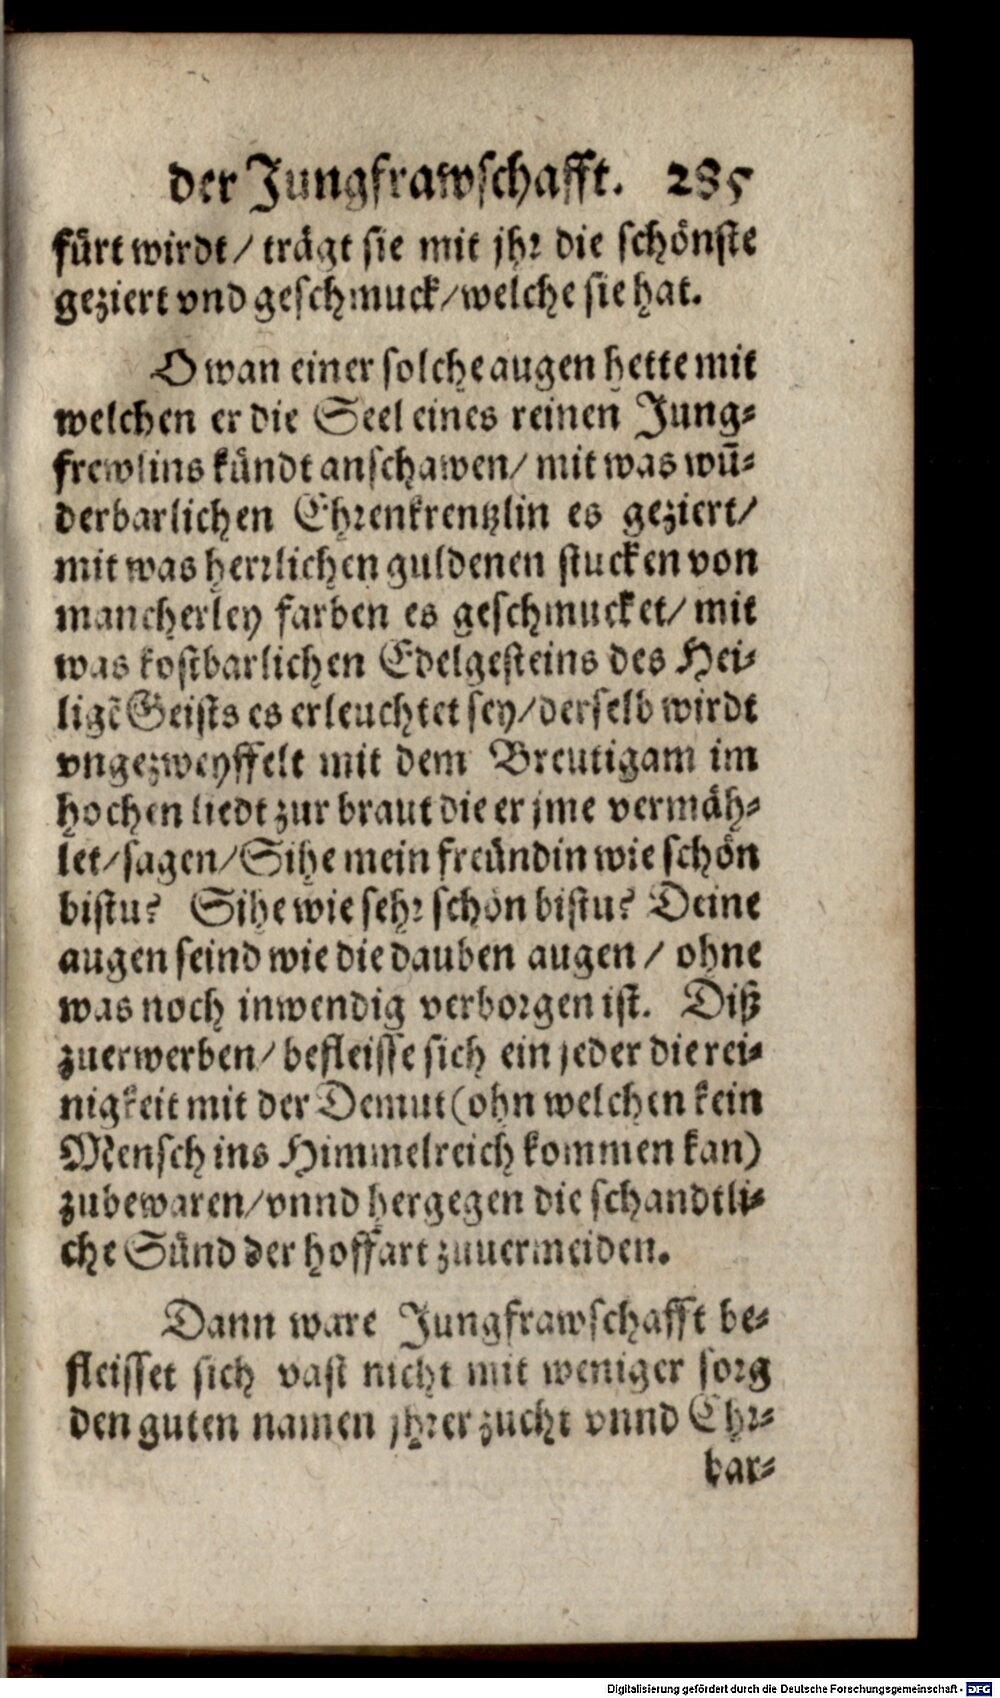 der Jungfrawschafft. 285
fürt wirdt/ trägt sie mit jhr die schönste
geziert vnd geschmuck/welche sie hat.
O wan einer solche augen hette mit
welchen er die Seel eines reinen Jung-
frewlins kündt anschawen/ mit was wū-
derbarlichen Ehrenkrentzlin es geziert/
mit was herrlichen guldenen stucken von
mancherley farben es geschmucket/ mit
was kostbarlichen Edelgesteins des Hei-
ligē Geists es erleuchtet sey/derselb wirdt
vngezweyffelt mit dem Breutigam im
hochen liedt zur braut die er jme vermäh-
let/sagen/Sihe mein freündin wie schön
bistu? Sihe wie sehr schön bistu? Deine
augen seind wie die dauben augen / ohne
was noch inwendig verborgen ist. Diß
zuerwerben/ befleisse sich ein jeder die rei-
nigkeit mit der Demut (ohn welchen kein
Mensch ins Himmelreich kommen kan)
zubewaren/vnnd hergegen die schandtli-
che Sünd der hoffart zuuermeiden.
Dann ware Jungfrawschafft be-
fleisset sich vast nicht mit weniger sorg
den guten namen jhrer zucht vnnd Ehr-
bar-
Digitalisierung gefördert durch die Deutsche Forschungsgemeinschaft - DFG